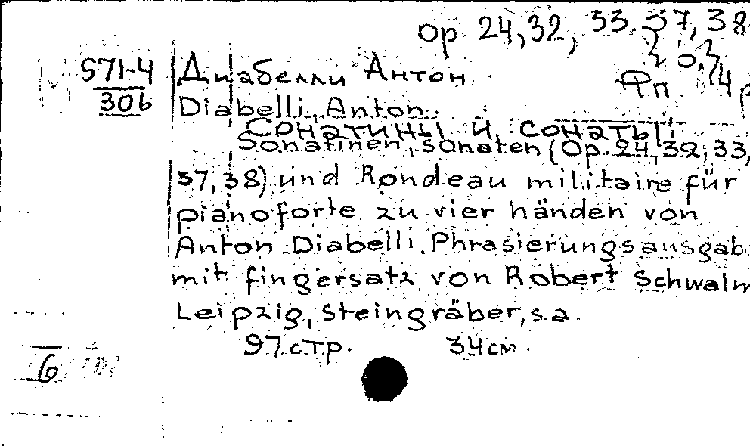 Op 24, 32, 33, 37, 38
571-4
306
Диабелли Антон
Фп. 4 р
Diabelli, Anton.
Сонатины и сонаты
Sonatinen, Sonaten (Op. 24, 32, 33,
37, 38) und Rondeau militaire für
pianoforte zu vier händen von
Anton Diabelli. Phrasierungsausgab
mit fingersatz von Robert Schwalm
Leipzig, Steingräber, s.a.
97 стр. 34 см.
6